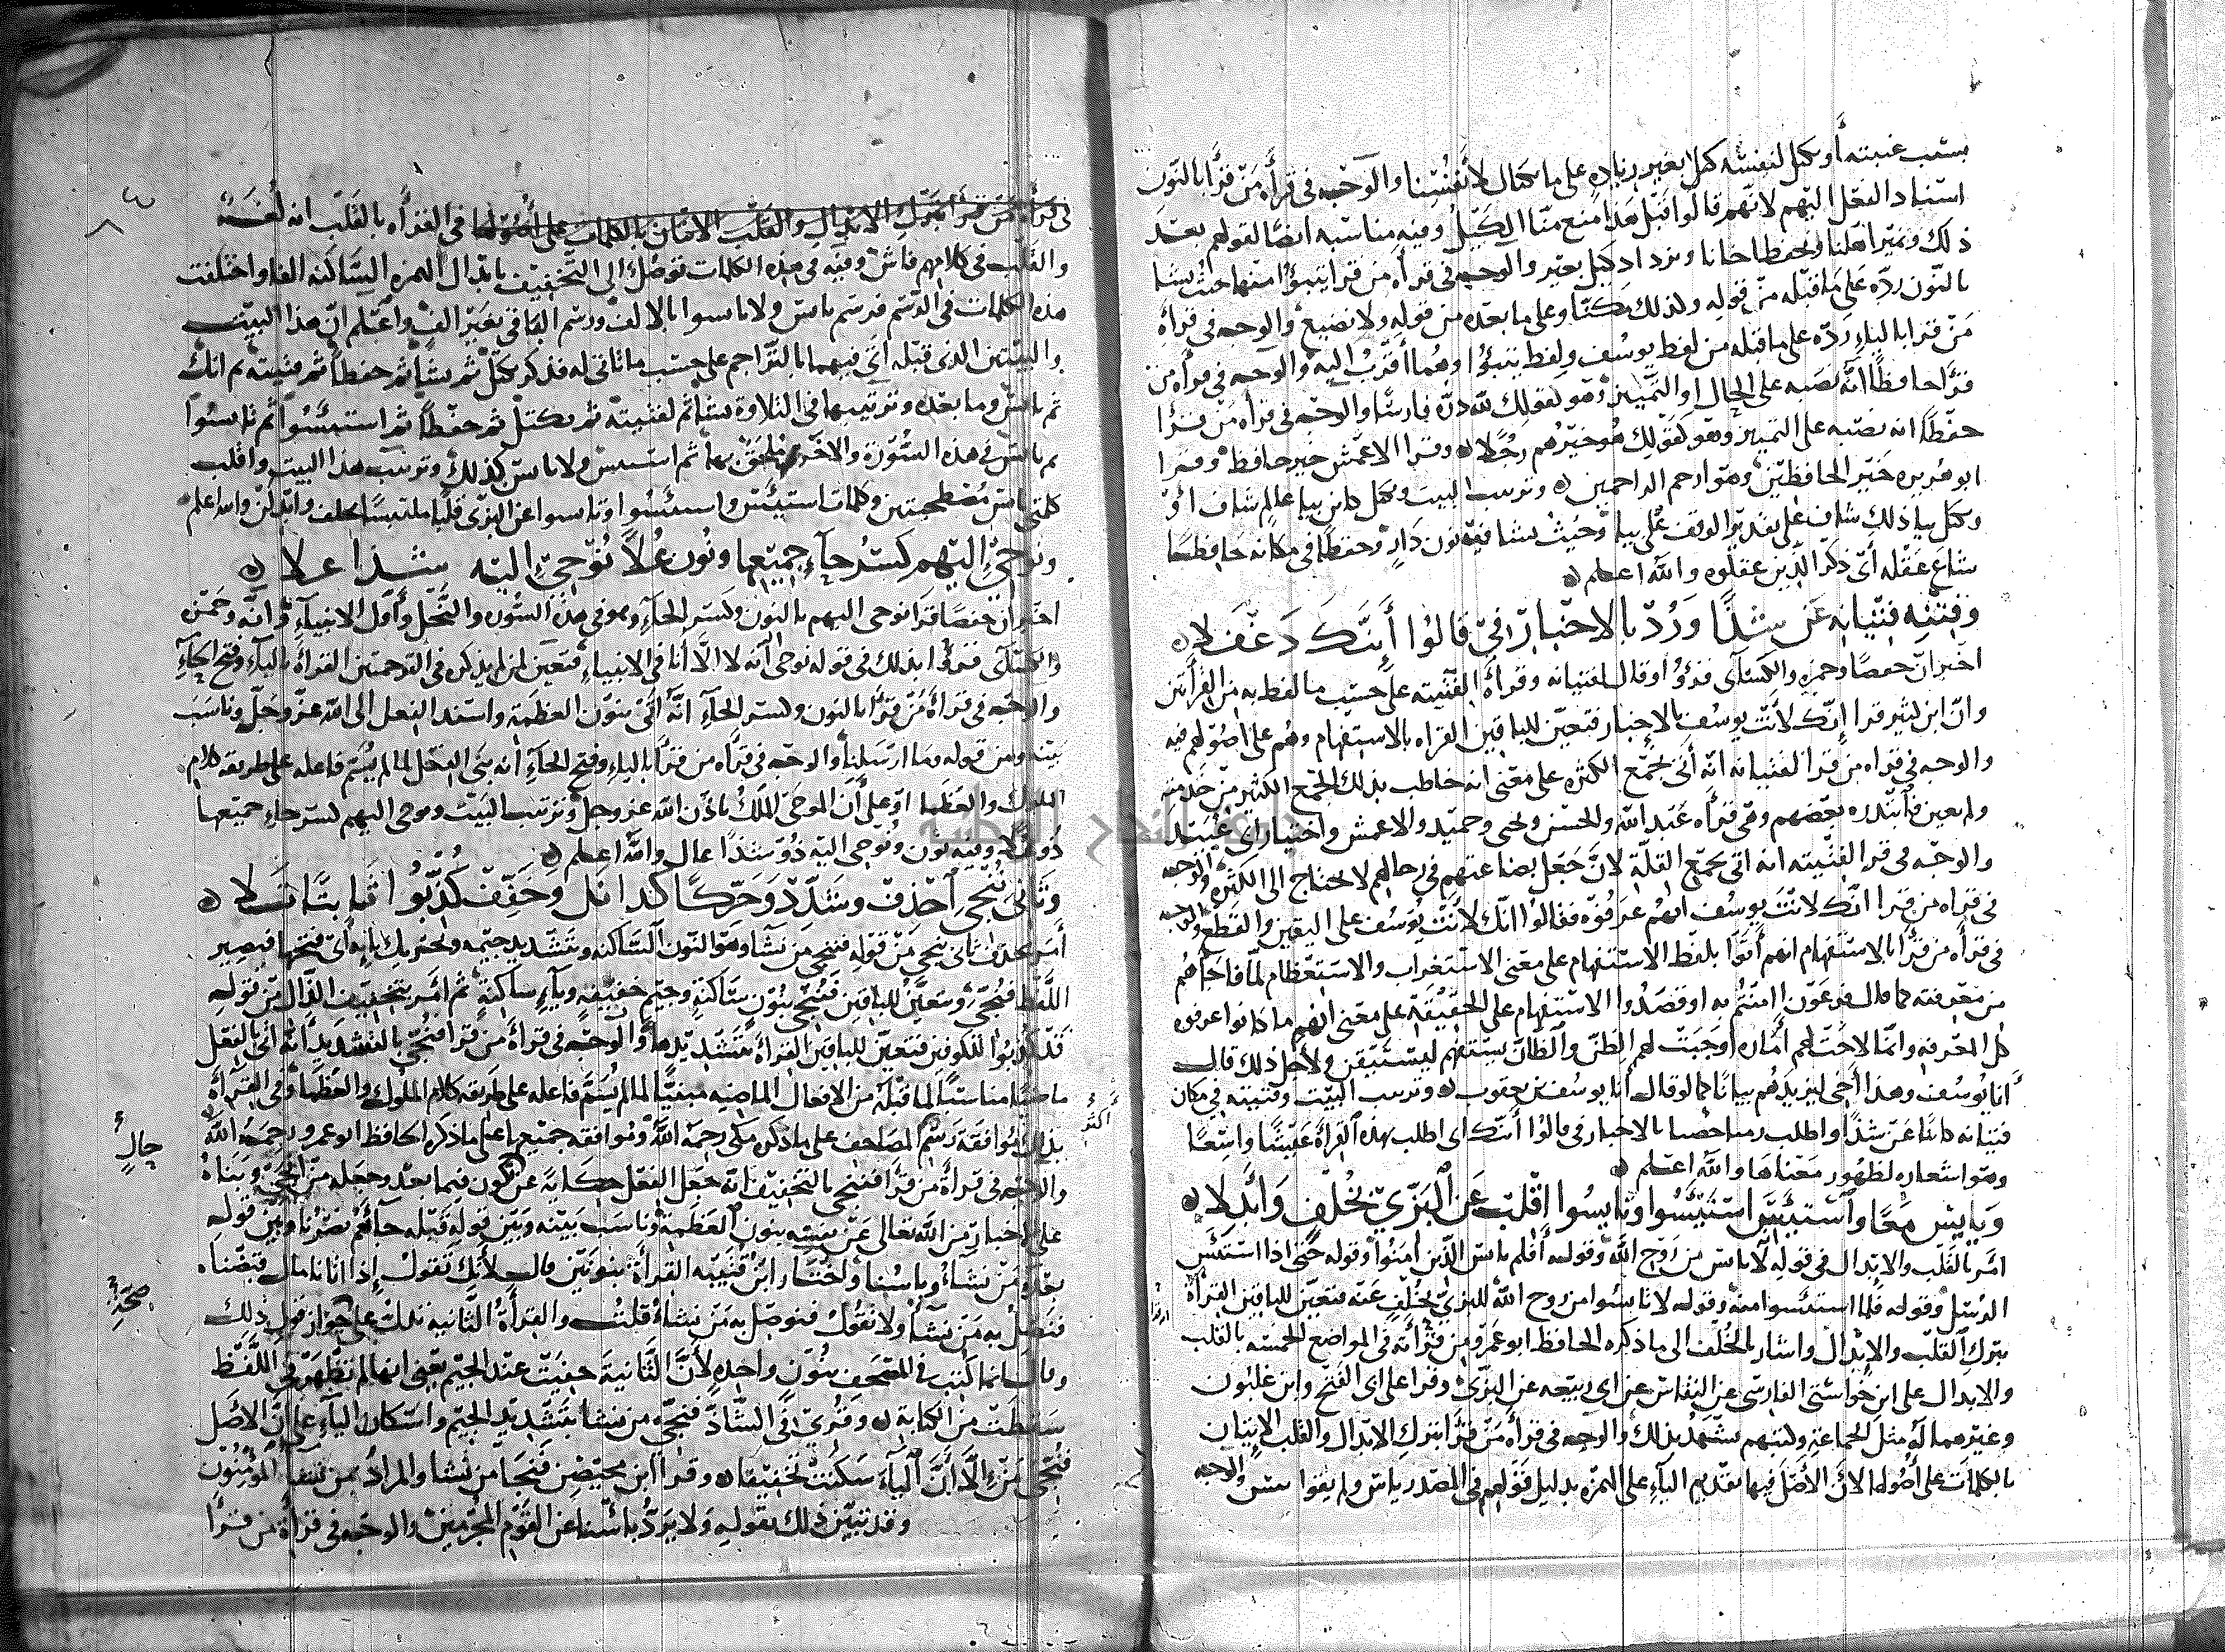 بسبب غيبته أو نكتل لنفسه كيل بعير زيادة على ما نكتال لأنفسنا والوجه في قراة من قرأ بالنون
اسناد الفعل اليهم لانهم قالوا قبل هذا منع منا الكيل وفيه مناسبه ايضا لقولهم بعد
ذلك ونمير اهلنا ونحفظ اخانا ونزداد كيل بعير والوجه في قراة من قرا يتبوا منها حيث يشا
بالنون رده على ما قبله من قوله ولذلك مكنا وعلى ما بعده من قوله ولا نضيع والوجه في قراة
من قرا بالياء رده على ما قبله من لفظ يوسف ولفظ يتبوؤا وهما أقرب اليه والوجه في قراه من
قرا حافظا انه نصبه على الحال او التمييز وهو كقولك لله دره فارسا والوجه في قراه من قرا
حفظا انه نصبه على التمييز وهو كقولك هو خيرهم رجلا وقرا الاعمش خير حافظ وقرا
ابو هريره خير الحافظين وهو ارحم الراحمين وترتيب البيت ونكتل كاين بيا عالم شاف او
وكتل بيا ذلك شاف على تقدير الوقف على بيا وحيث يشا فيه نون دار وحفظا في مكانه حافظا
شاع عقله أي ذكر الذين عقلوه والله اعلم
وفتيته فتيانه عن شذا ورد بالاخبار في قالوا أئنك دغفلا
اخبر ان حفصا وحمزه والكسائي قرؤا وقال لفتيانه وقراة الفتيته على حسب ما لفظ به من القراتين
وان ابن كثير قرا انك لأنت يوسف بالاخبار فتعين للباقين القراه بالاستفهام وهم على اصولهم فيه
والوجه في قراه من قرا لفتيانه انه أتى بجمع الكثره على معنى انه خاطب بذلك الجمع الكثير من خدمته
ولم يعين فابتدره بعضهم وهي قراه عبد الله والحسن ويحيى وحميد والاعمش واختيار ابي عبيد
والوجه في قرا الفتيته انه اتى بجمع القلة لان جعل بضاعتهم في رحالهم لا يحتاج الى الكثره والوجه
في قراه من قرا انك لانت يوسف انهم عرفوه فقالوا انك لانت يوسف على اليقين والقطع والوجه
في قرأه من قرا بالاستفهام انهم أتوا بلفظ الاستفهام على معنى الاستغراب والاستعظام لما فاجاهم
من معرفته كما قال فرعون اامنتم به او قصدوا الاستفهام على الحقيقة على معنى انهم ما كانوا عرفوه
كل المعرفه وانما لاحت لهم أماره أوجبت لهم الظن والظان يستفهم ليستيقن ولأجل ذلك قال
أنا يوسف وهذا أخي ليزيدهم بيانا كما لو قال أنا يوسف بن يعقوب وترتيب البيت وفتيته في مكان
فتيانه كائنا عن شذا واطلب رد بالاخبار في قالوا أئنك اي اطلب بهذه القراة عيشا واسعا
وهو استعاره لظهور معناها والله اعلم
ويايئس معا واستيئس استيئسوا وتايئسوا اقلب عن البزي بخلف وابدلا
امر بالقلب والابدال في قوله لا يايس من روح الله وقوله أفلم يايس الذين امنوا وقوله حتى اذا استيئس
الرسل وقوله فلما استيئسوا منه وقوله لا تايسوا من روح الله للبزي بخلف عنه فتعين للباقين القراة
بترك القلب والابدال واشار بالخلف الى ما ذكره الحافظ ابو عمرو من قرأته في المواضع الخمسه بالقلب
والابدال على ابن خواستي الفارسي عن النقاش عن ابي ربيعه عن البزي وقرا على ابي الفتح وابن غلبون
وغيرهما له مثل الجماعة وكتبهم تشهد بذلك والوجه في قرأة من قرا بترك الابدال والقلب الاتيان
بالكلمات على أصولها لان الأصل فيها تقديم الياء على الهمزه بدليل قولهم في المصدر ياس ولم يقولوا والوجه
في قرأة من قرأ بترك الابدال والقلب الاتيان بالكلمات على أصولها في القراه بالقلب انه لغة
والقلب في كلامهم فاش وفيه في هذه الكلمات توصل الى التخفيف بابدال الهمزه الساكنه الفا واختلفت
هذه الكلمات في الرسم فرسم يايس ولا تايسوا بالالف ورسم الباقي بغير الف واعلم ان هذا البيت
والبيتين الذي قبله اتى فيهما بالتراجم على حسب ما تاتى له فذكر نكتل ثم يشا ثم حفظا ثم فتيته ثم انك
ثم يايس وما بعده وترتيبها في التلاوة يشا ثم لفتيته ثم نكتل ثم حفظا ثم استيئسوا ثم تايسوا
ثم يايس في هذه السورة والاخر ملحق بها ثم استيئس ولا يايس كذلك وترتيب هذا البيت واقلب
كلمتي يايس مصطحبتين وكلمات استيئس واستيئسوا وتايسوا عن البزي قلبا ملتبسا بخلف وابدلن والله اعلم
ونوحي اليهم كسر حاء جميعها ونون علا نوحي اليه شذا علا
اخبر ان حفصا قرا نوحي اليهم بالنون وكسر الحاء وهو في هذه السوره والنحل وأول الانبياء وانه وحمزه
والكسائي قرءا بذلك في قوله نوحي اليه انه لا اله الا أنا في الانبياء فتعين لمن لم يذكره في الترجمتين القراة بالياء وفتح الحاء
والوجه في قراة من قرا بالنون وكسر الحاء انه أتى بنون العظمة واسند الفعل الى الله عز وجل وناسب
بينه ومن قوله وما ارسلنا والوجه في قرأه من قرا بالياء وفتح الحاء أنه بنى الفعل لما لم يسم فاعله على طريقه كلام
الملوك والعظما او على أن الموحى الملك باذن الله عز وجل وترتيب البيت ويوحى اليهم كسر حاء جميعها
ذو علا وفيه نون ونوحي اليه ذو شذا عال والله اعلم
وثاني ننجي احذف وشدد وحركا كذا نل وخفف كذبوا ثابتا تلا
أمر بحذف ثاني ننجي من قوله فننجي من نشا وهو النون الساكنه وبتشديد جيمه وتحريك يائه أي فتحها فيصير
اللفظ فنجي وتعين للباقين فننجي بنون ساكنة وجيم خفيفة وياء ساكنة ثم امر بتخفيف الذال من قوله
قد كذبوا للكوفيين فتعين للباقين القراة بتشديدها والوجه في قراة من قرا فنجي بالتشديد أنه اتى بالفعل
ماضيا مناسبا لما قبله من الافعال الماضيه مبنيا لما لم يسم فاعله على طريقه كلام الملوك والعظما وفي القراة
بذلك موافقة رسم المصاحف على ما ذكره مكي رحمه الله وموافقه جميعها على ما ذكره الحافظ ابو عمرو رحمه الله
والوجه في قرأة من قرا فننجي بالتخفيف انه جعل الفعل حكاية عن حال تكون فيما بعد وجعله من انجى وبناه
على اخبار من الله تعالى عن نفسه بنون العظمة وناسب بينه وبين قوله قبله جاءهم نصرنا وبين قوله
بعد من نشاء وباسنا واختار ابن قتيبه القراة بنونين قال لأنك تقول إذا اتانا مال قبضناه
فنصل به من نشا ولا تقول فنوصل به من نشاء قلت والقرأة الثانيه تدلك على صحة جواز قول ذلك
وقال انما كتب في المصحف بنون واحدة لأن الثانية خفيت عند الجيم يعني انها لم تظهر في اللفظ
سقطت من الكتابة وقرئ في الشاذ فنجي من نشا بتشديد الجيم واسكان الياء على ان الاصل
فنجي من الا أن الياء سكنت تخفيفا وقرا ابن محيصن فنجا من نشا والمراد بمن نشا المؤمنون
وقد تبين ذلك بقوله ولا يرد باسنا عن القوم المجرمين والوجه في قرأة من قرأ
أكثر
حال
صحة